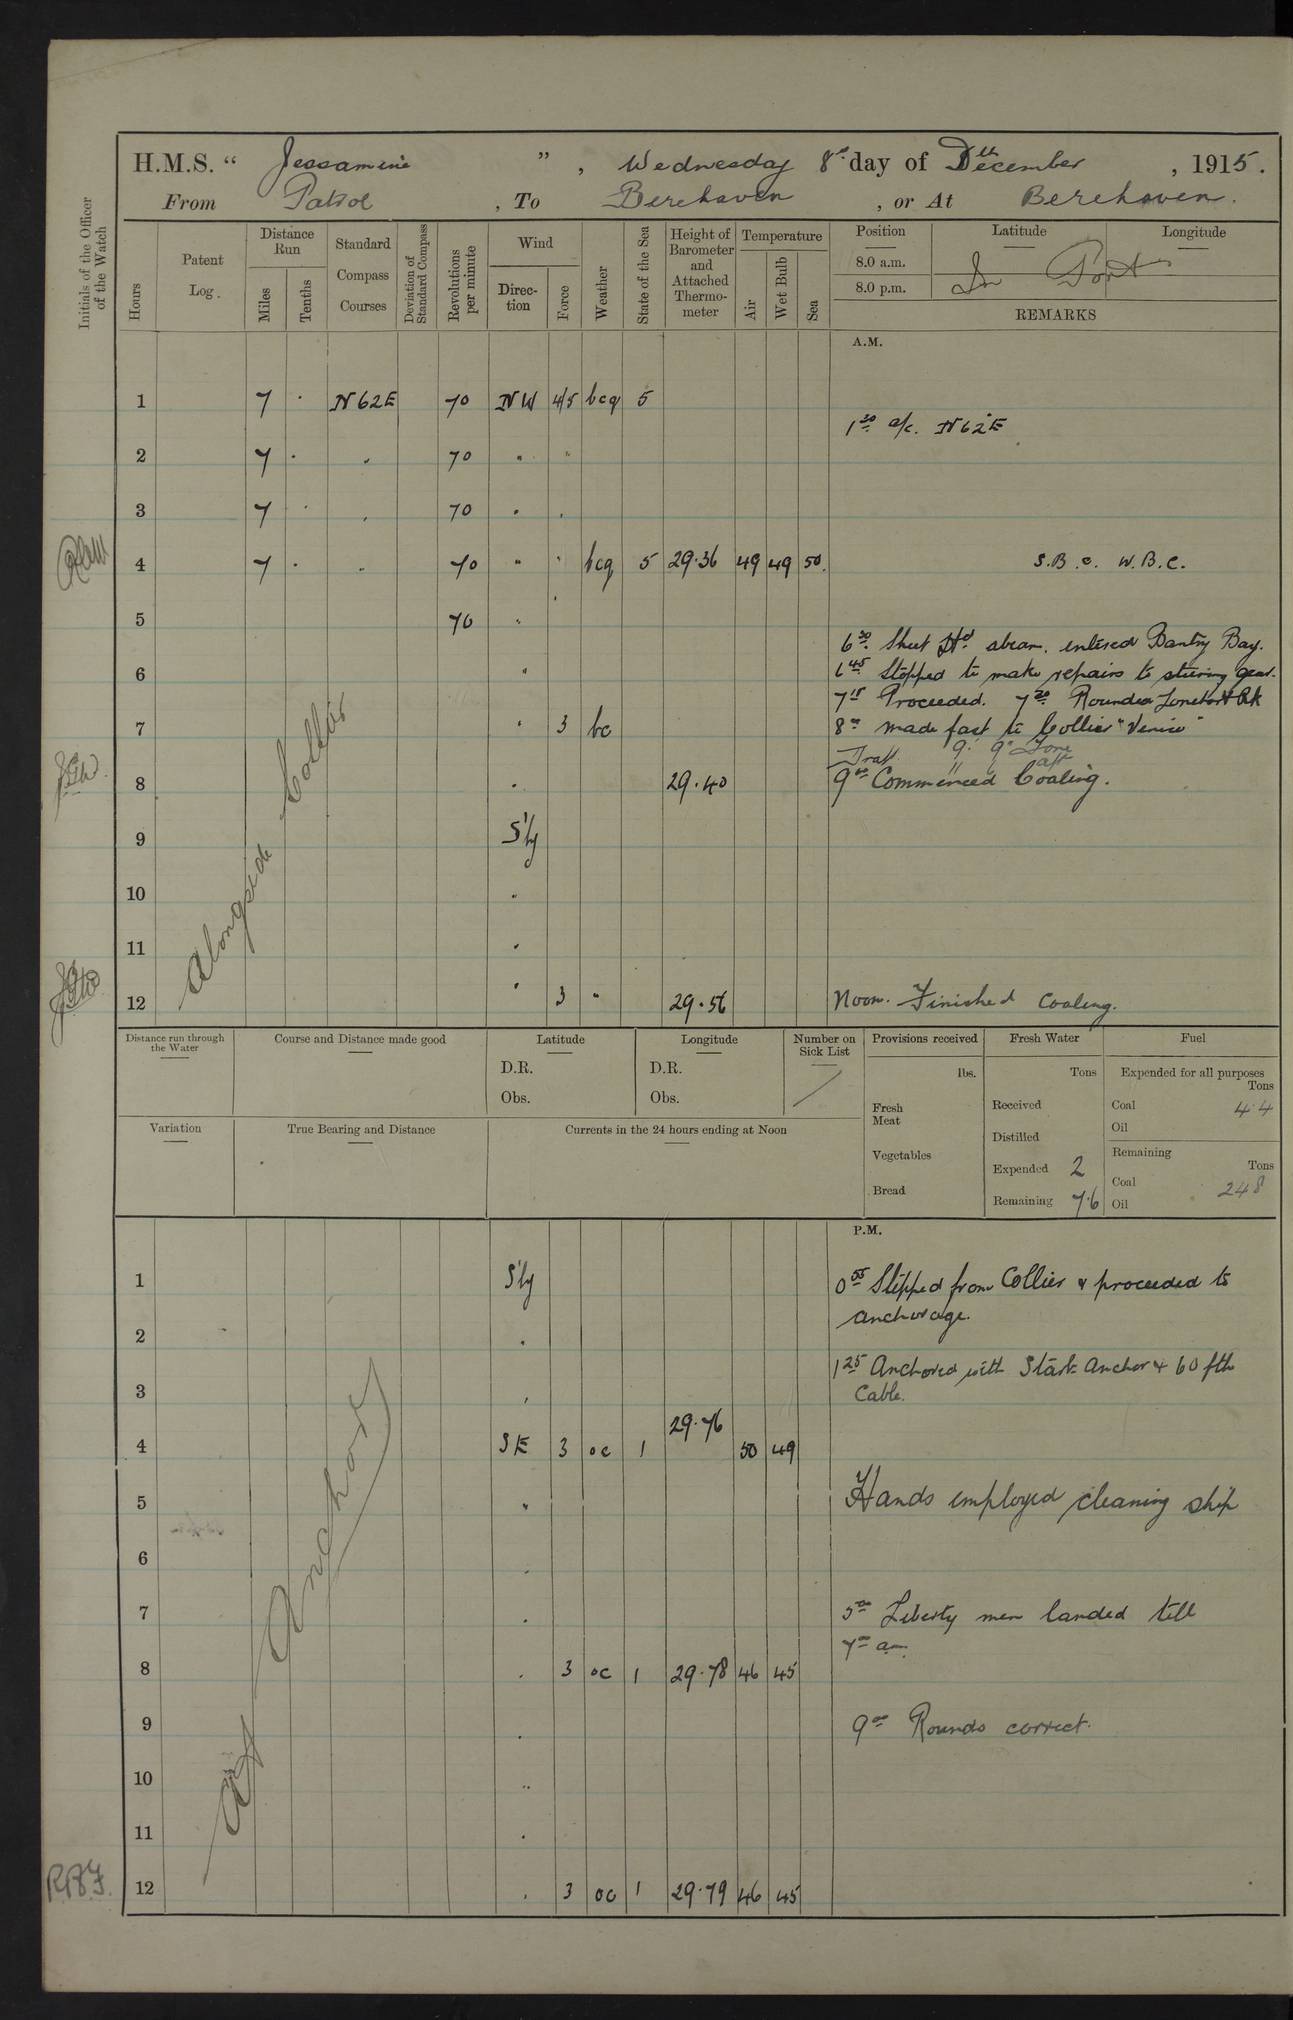 H.M.S. “ Jessamine ” , Wednesday 8th day of December , 1915 .
From Patrol , To Berehaven , or At Berehaven .
Initials of the Officer of the Watch
Hours
Patent Log.
Distance Run
Miles
Tenths
Standard Compass Courses
Deviation of Standard Compass
Revolutions per minute
Wind
Direction
Force
Weather
State of the Sea
Height of Barometer and Attached Thermometer
Temperature
Air
Wet Bulb
Sea
Position Latitude Longitude
8.0 a.m.
8.0 p.m.
In Port
REMARKS
A.M.
1 7 · N62E 70 NW 4/5 bcq 5
1 30 a/c. N62°E
2 7 · " 70 " "
3 7 · " 70 " "
4 7 · " 70 " " bcq 5 29.36 49 49 50 S.B.C. W.B.C.
5 70 "
6 30 Sheep Hd abeam. entered Bantry Bay.
6 "
6 45 Stopped to make repairs to steering gear.
7 15 Proceeded. 7 20 Rounded Rk
7 " 3 bc
8 00 made fast to Collier "Venice"
9' 9" aft
8 " 29.40
9 00 Commenced Coaling.
9 S'ly
10 "
11 "
12 " 3 " 29.56 Noon. Finished Coaling.
Alongside Collier
Distance run through the Water
Course and Distance made good
Latitude
D.R.
Obs.
Longitude
D.R.
Obs.
Number on Sick List
/
Provisions received
lbs.
Fresh Meat
Vegetables
Bread
Fresh Water
Tons
Received
Distilled
Expended 2
Remaining 76
Fuel
Expended for all purposes
Tons
Coal 44
Oil
Remaining
Tons
Coal 248
Oil
Variation
True Bearing and Distance
Currents in the 24 hours ending at Noon
P.M.
1 S'ly 0 55 Slipped from Collier & proceeded to
anchorage.
2 "
1 25 Anchored with Starb Anchor & 60 fths
Cable.
3 "
4 SE 3 oc 1 29.76 50 49
5 " Hands employed cleaning ship
6 "
7 " 5 00 Liberty men landed till
7 00 am.
8 " 3 oc 1 29.78 46 45
9 " 9 00 Rounds correct.
10 "
11 "
12 " 3 oc 1 29.79 46 45
At Anchor